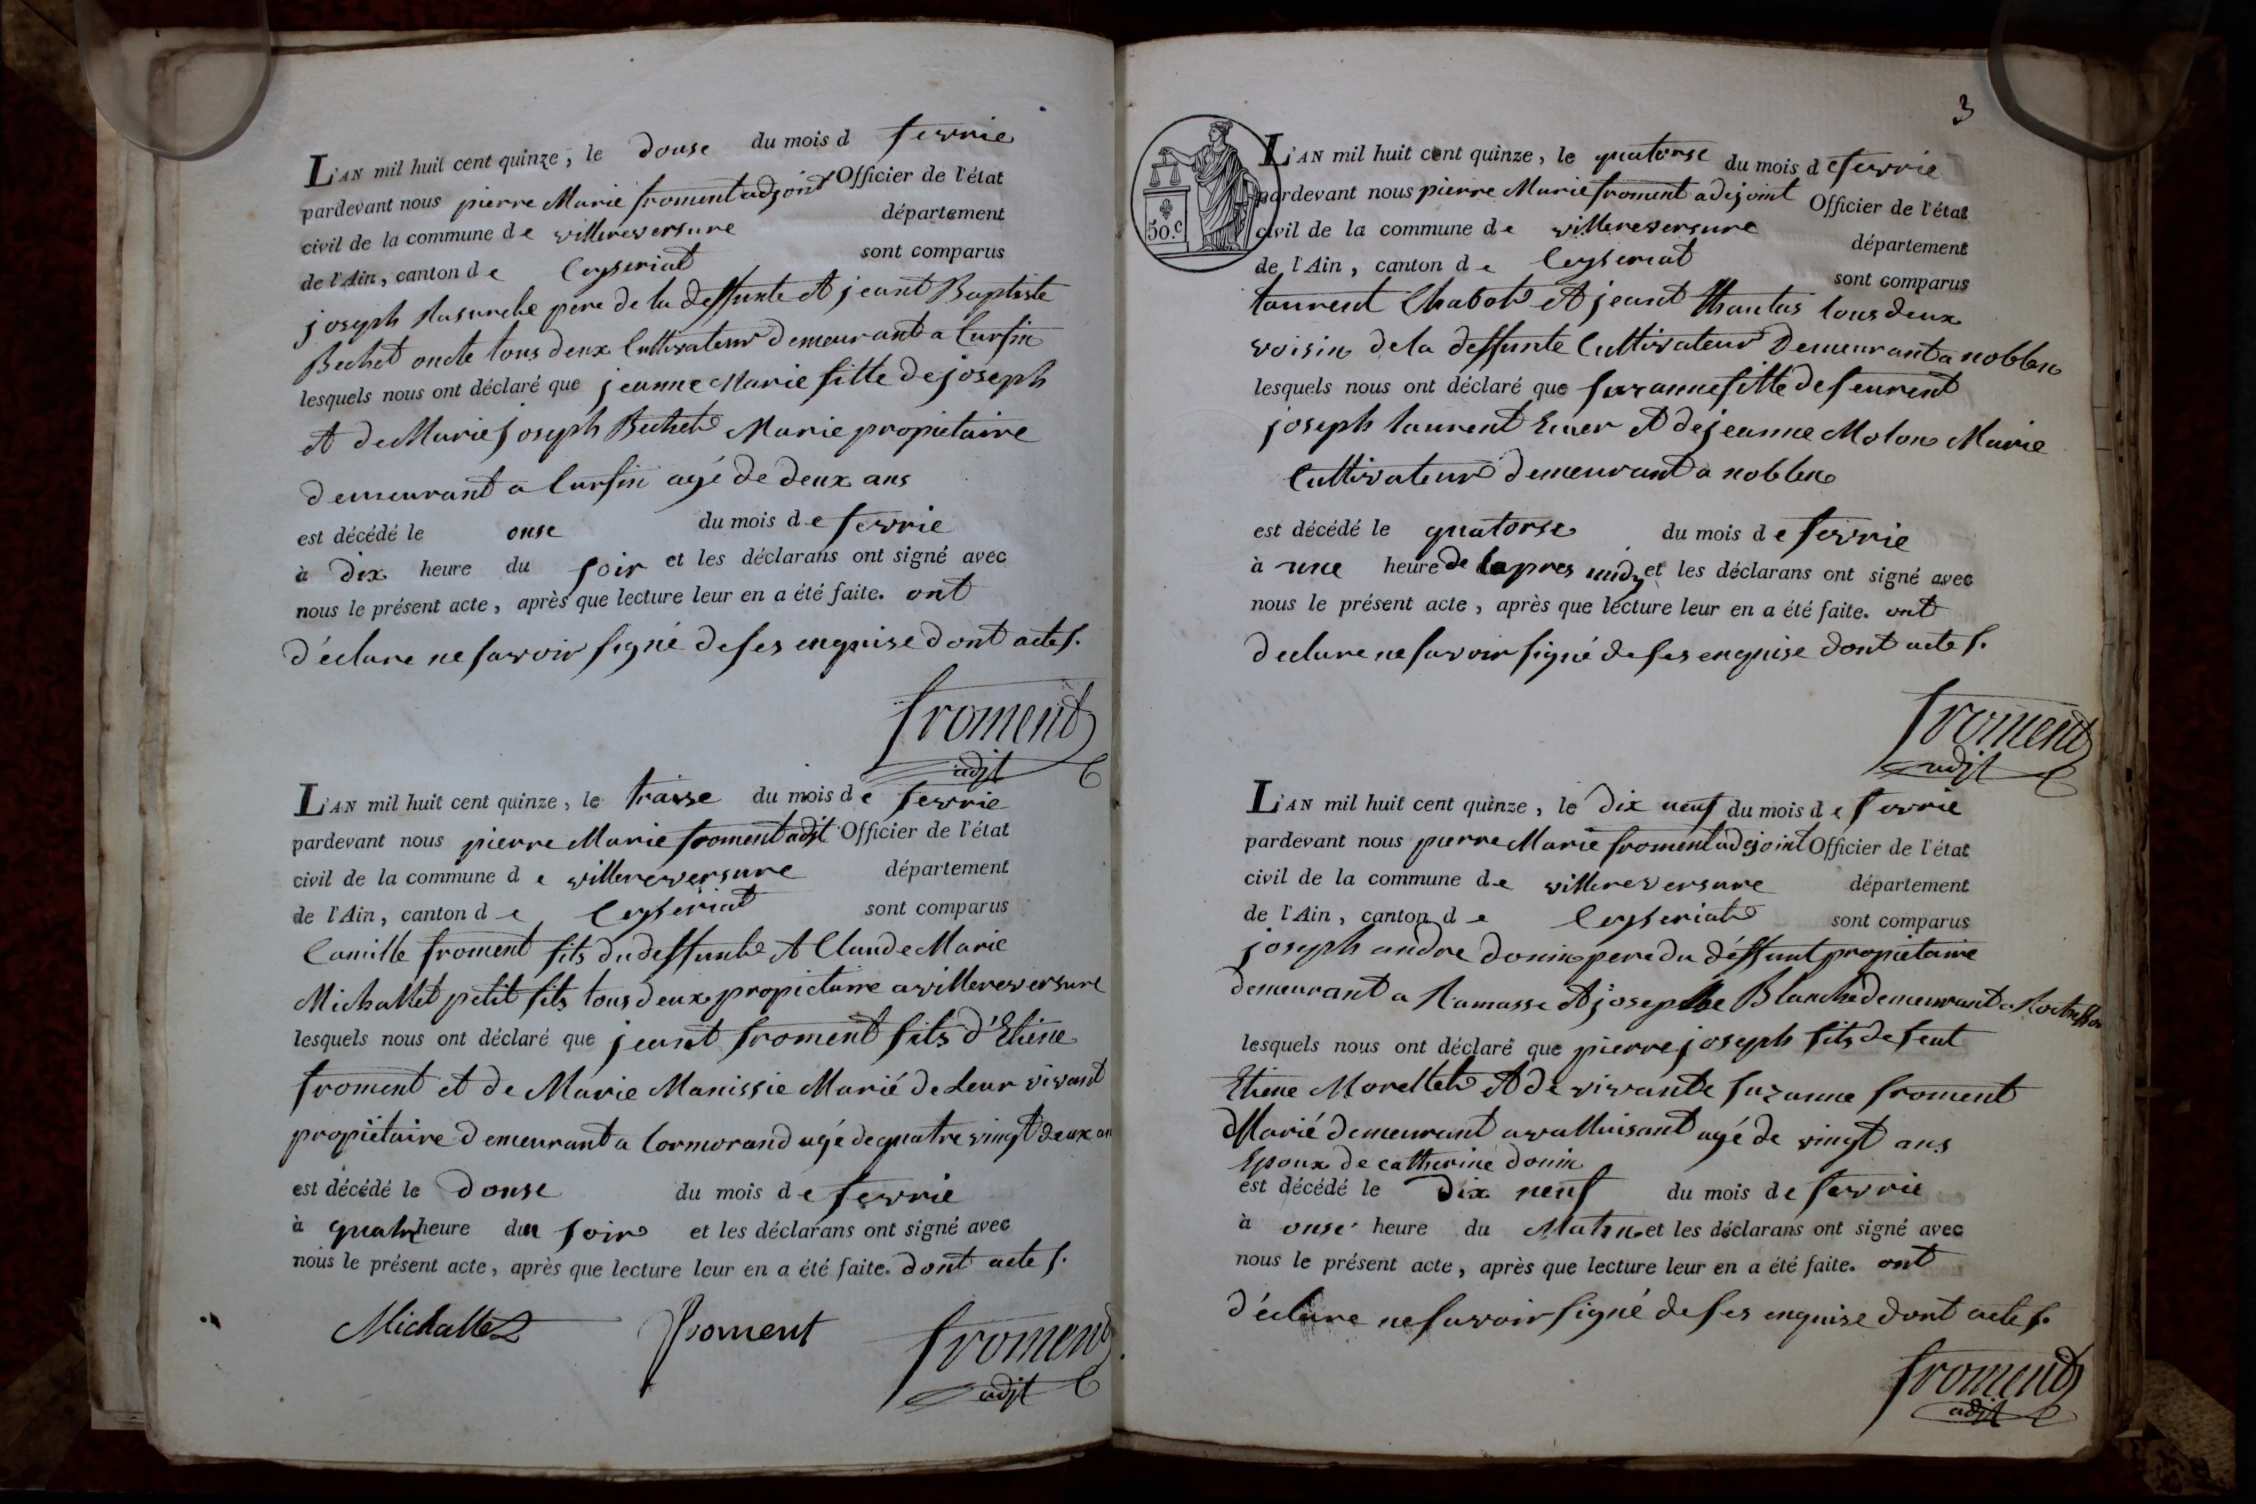 L'AN mil huit cent quinze, le douse du mois d fevrie
pardevant nous pierre Marie froment adjoint Officier de l'état
civil de la commune de villereversure département
de l'Ain, canton de Ceyseriat sont comparus
joseph pere de la deffunte et jeant Baptiste
Bechet oncle tous deux Cultivateur demeurant a Cursin
lesquels nous ont déclaré que jeanne Marie fille de joseph
et de Marie joseph Bechet Marie propietaire
demeurant a Cursin agé de deux ans
est décédé le onse du mois de fevrie
à dix heure du soir et les déclarans ont signé avec
nous le présent acte, après que lecture leur en a été faite. ont
déclare ne savoir signé de ses enquise dont acte s.
froment
adjt
L'AN mil huit cent quinze, le traisse du mois de fevrie
pardevant nous pierre Marie froment adjt Officier de l'état
civil de la commune de villereversure département
de l'Ain, canton de Ceyseriat sont comparus
Camille froment fils du deffunt et Claude Marie
Michallet petit fils tous deux propietaire a villereversure
lesquels nous ont déclaré que jeant froment fils d'Etiene
froment et de Marie Manissie Marié de Leur vivant
propiétaire demeurant a Cormorand agé de quatre vingt deux an
est décédé le douse du mois de fevrie
à quatre heure du soir et les déclarans ont signé avec
nous le présent acte, après que lecture leur en a été faite. dont acte s.
Michallet froment froment
adjt
3
50.c
L'AN mil huit cent quinze, le quatorse du mois de fevrie
pardevant nous pierre Marie froment adejoint Officier de l'état
civil de la commune de villereversure département
de l'Ain, canton de Ceyseriat sont comparus
laurent Chabot et jeant tous deux
voisin de la deffunte Cultivateur Demeurant a noblen
lesquels nous ont déclaré que suzanne fille de feu
joseph laurent et de jeanne Molon Marie
Cultivateur demeurant a noblen
est décédé le quatorse du mois de fevrie
à une heure de lapres midy et les déclarans ont signé avec
nous le présent acte, après que lecture leur en a été faite. ont
declare ne savoir signé de ses enquise dont acte s.
froment
adjt
L'AN mil huit cent quinze, le dix neuf du mois de fevrie
pardevant nous pierre Marie froment adejoint Officier de l'état
civil de la commune de villereversure département
de l'Ain, canton de Ceyseriat sont comparus
joseph andre donin pere du déffunt propietaire
demeurant a Ramasse et josephe Blanche demeurant a
lesquels nous ont déclaré que pierre joseph fils de feut
Etiene Morellet et de vivante Suzanne froment
Marié demeurant a valluisant agé de vingt ans
Epoux de catherine donin
est décédé le dix neuf du mois de fevrie
à onse heure du Matin et les déclarans ont signé avec
nous le présent acte, après que lecture leur en a été faite. ont
déclare ne savoir signé de ses enquise dont acte s.
froment
adjt